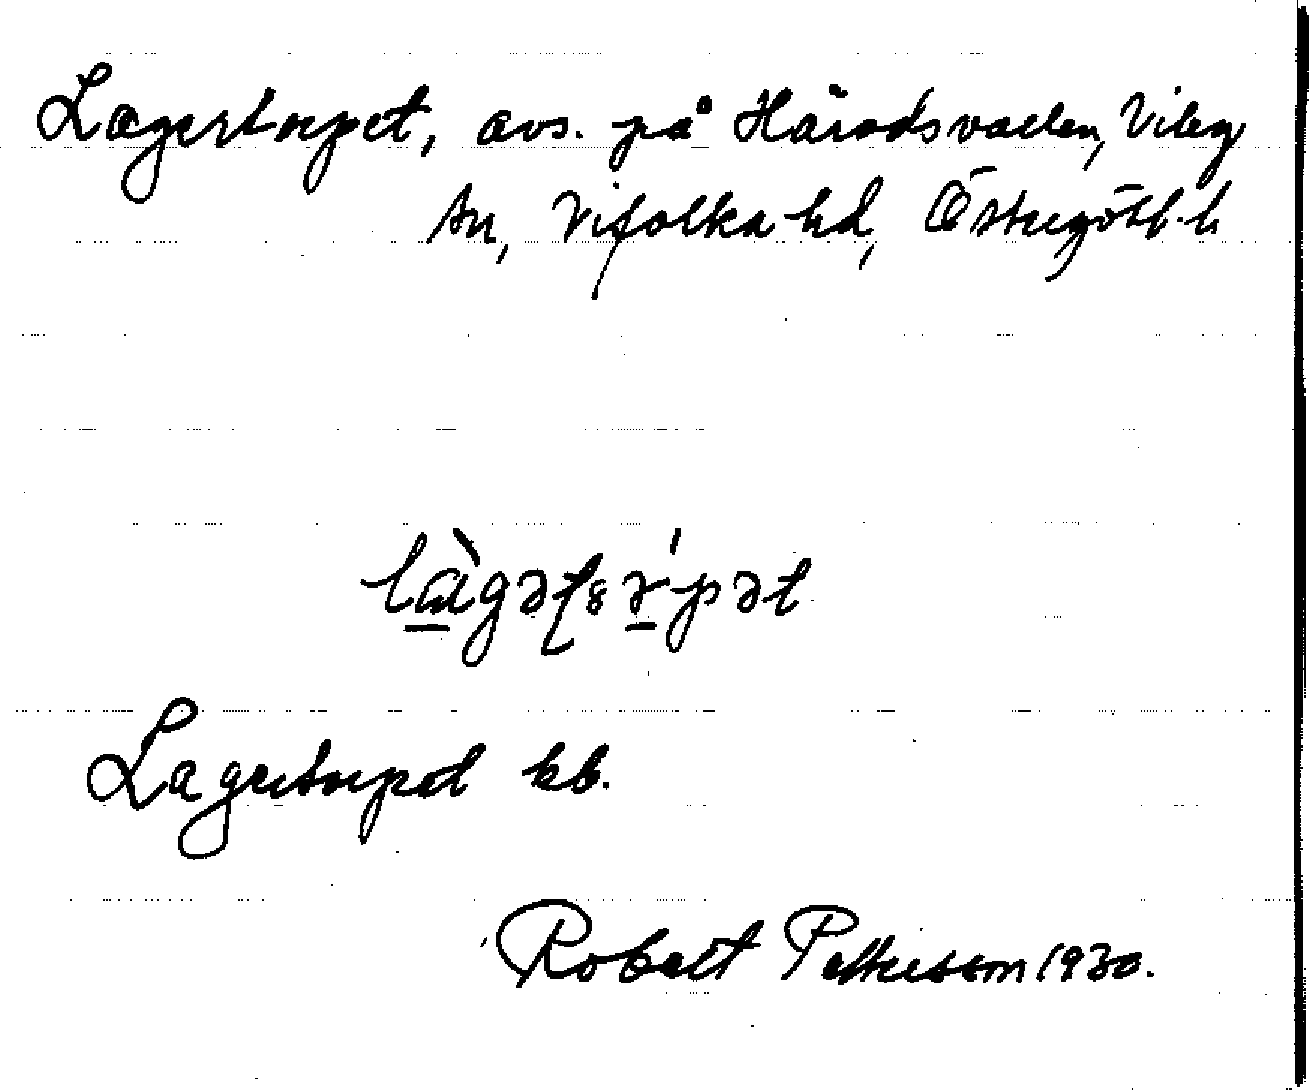 Lagerstorpet, avs. på Häradsvallen, Viby
sn, Vifolka hd, Östergötl. l.
Lagerstorpet kb.
Robert Pettersson 1930.